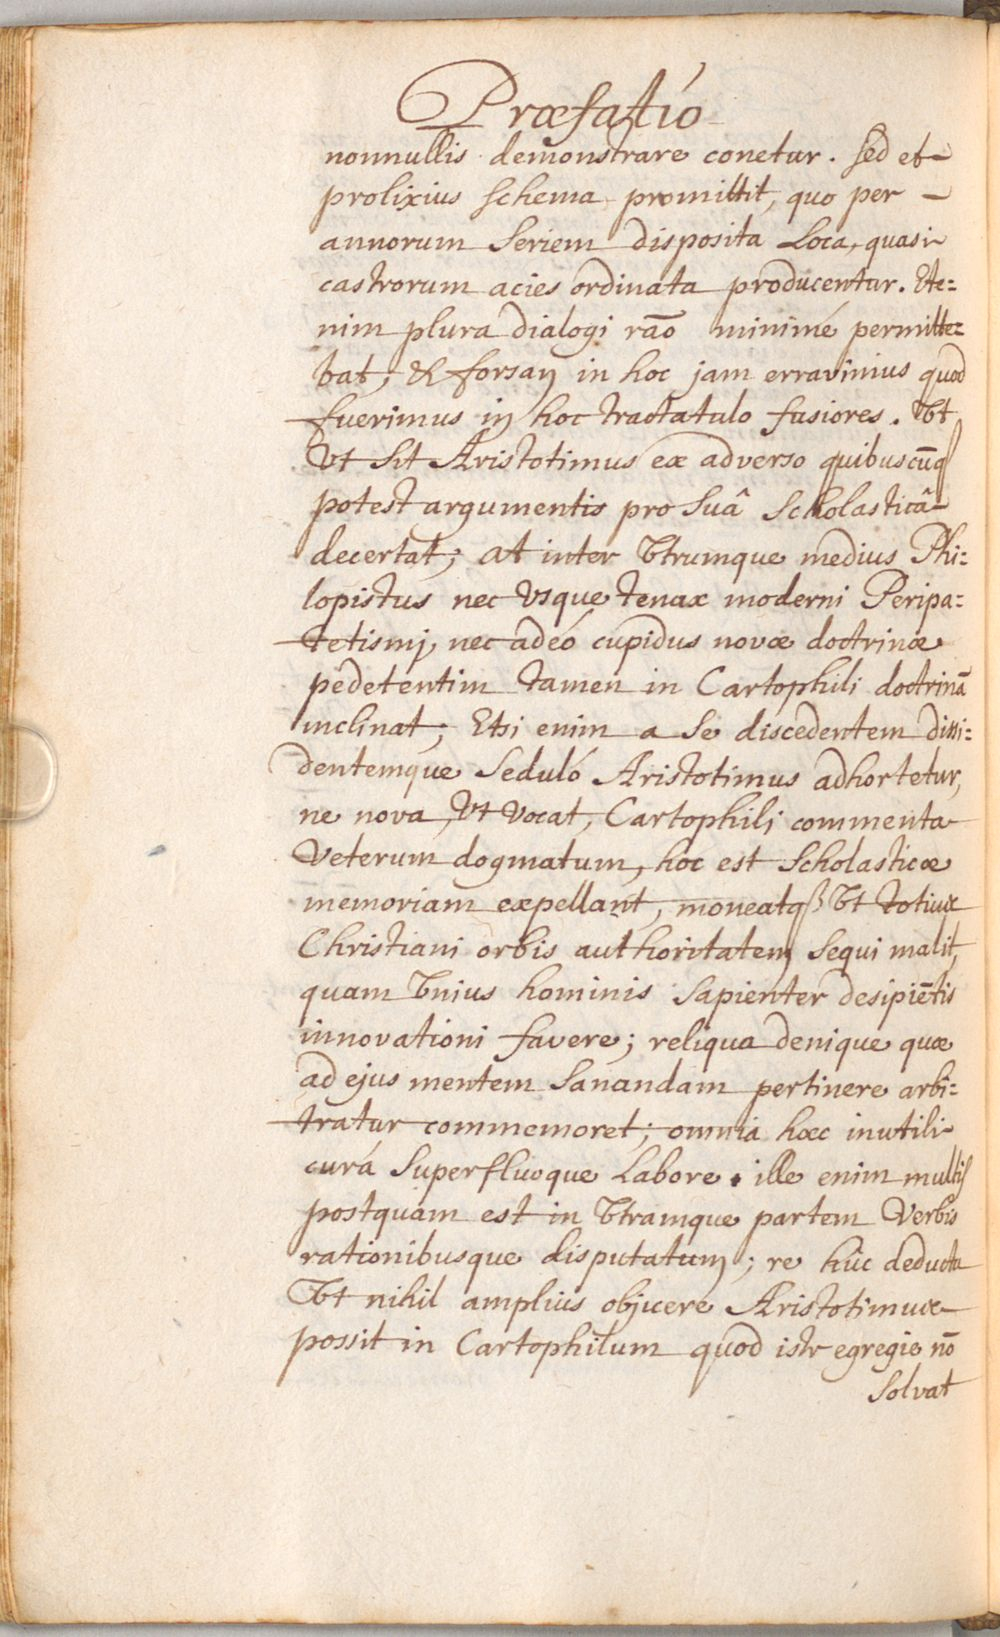 Præfatio
nonnullis demonstrare conetur. Sed et
prolixius schema promittit, quo per
annorum Seriem disposita Loca, quasi
castrorum acies ordinata producentur. Ete=
nim plura dialogi rāo minimé permitte=
bat; & forsan in hoc jam erravimus quod
fuerimus in hoc tractatulo fusiores. Vt
Vt sit Aristotimus ex adverso quibuscūq
potest argumentis pro Suâ Scholasticâ
decertat; at inter Vtrumque medius Phi=
lopistus nec Vsque tenax moderni Peripa=
tetismj, nec adeó cupidus novæ doctrinæ
pedetentim tamen in Cartophili doctrinā
inclinat; Etsi enim a Se discedentem dissi=
dentemque Seduló Aristotimus adhortetur,
ne nova, Vt Vocat, Cartophilj commenta
Veterum dogmatum, hoc est Scholasticæ
memoriam expellant, moneatq Vt totius
Christiani orbis authoritatem Sequi malit,
quam Vnius hominis Sapienter desipiētis
innovationi favere; reliqua denique quæ
ad ejus mentem Sanandam pertinere arbi=
tratur commemoret; omnia hæc inutili
curá Superfluoque Labore. ille enim multis
postquàm est in Vtramque partem Verbis
rationibusque disputatum; re hùc deducta
Vt nihil amplius objicere Aristotimus
possit in Cartophilum quod iste egregie nō
Solvat